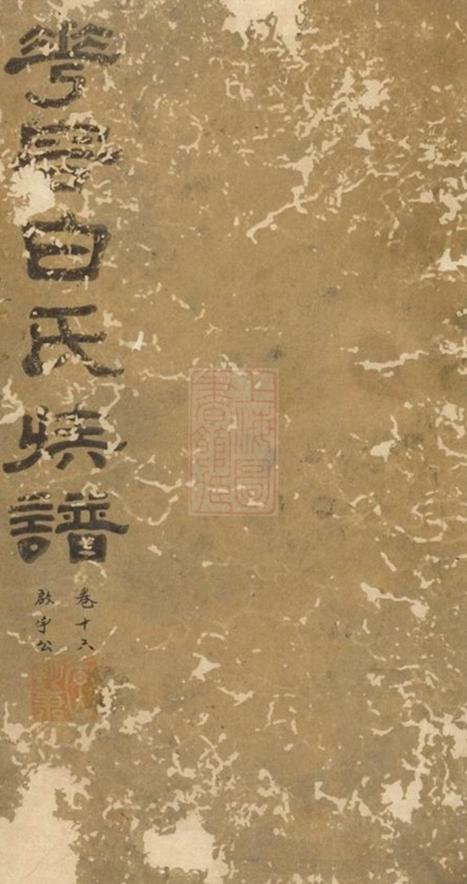 白氏族譜
卷十六
啟宇公
上海圖
書館藏